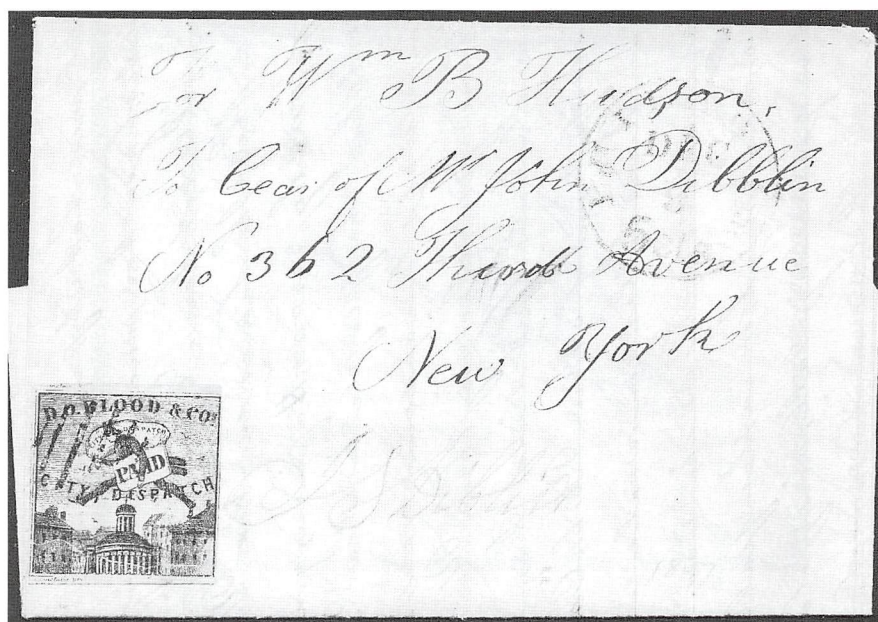 For Wm B Hudson,
To Cear of Mr John Dibblin
No 362 Third Avenue
New York
D.O. BLOOD & CO'S
PAID
CITY DESPATCH
J S Dibblin
DEC